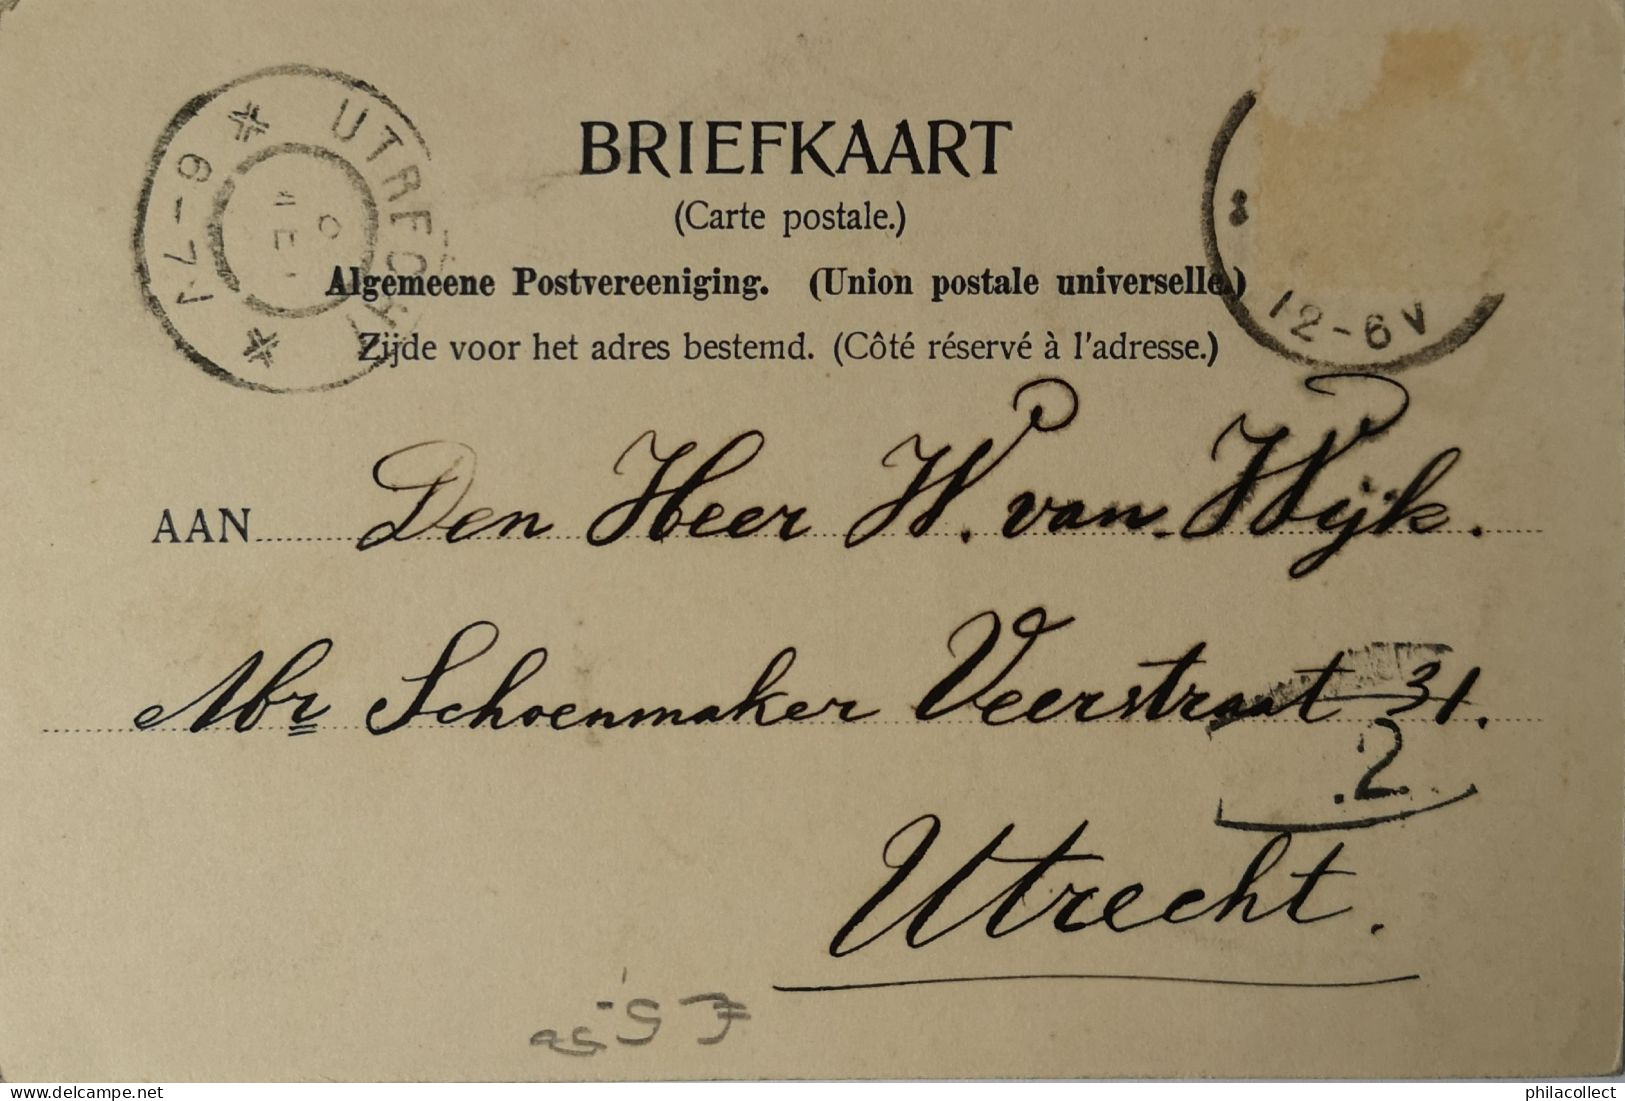 BRIEFKAART
(Carte postale.)
Algemeene Postvereeniging. (Union postale universelle.)
Zijde voor het adres bestemd. (Côté réservé à l'adresse.)
UTRECHT
6-7N
12-6V
AAN Den Heer W. van Wijk.
Mr Schoenmaker Veerstraat 31.
2
Utrecht.
philacollect